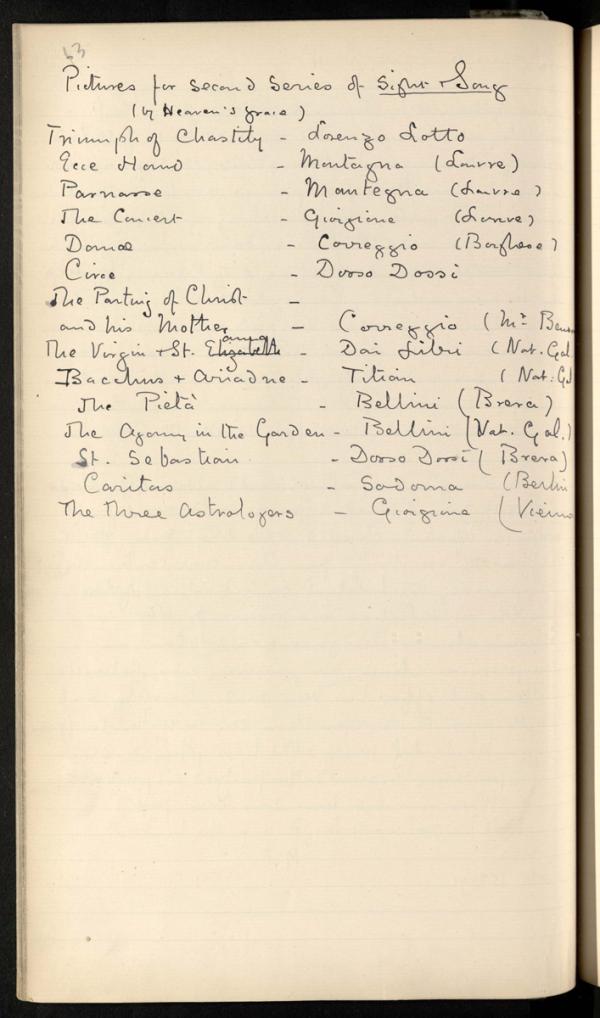 63
Pictures for second series of Sight & Song
(by Heaven's grace)
Triumph of Chastity - Lorenzo Lotto
Ecce Homo - Montagna (Louvre)
Parnasse - Mantegna (Louvre)
The Concert - Giorgione (Louvre)
Danae - Correggio (Borghese)
Circe - Dosso Dossi
The Parting of Christ -
and his Mother - Correggio (Mr Bens
anna
The Virgin & St. Elizabeth - Dai Libri (Nat. Gal
Bacchus & Ariadne - Titian (Nat. Gal
The Pietà - Bellini (Brera)
The Agony in the Garden - Bellini (Nat. Gal.)
St. Sebastian - Dosso Dossi (Brera)
Caritas - Sodoma (Berlin
The Three Astrologers - Giorgione (Vienna